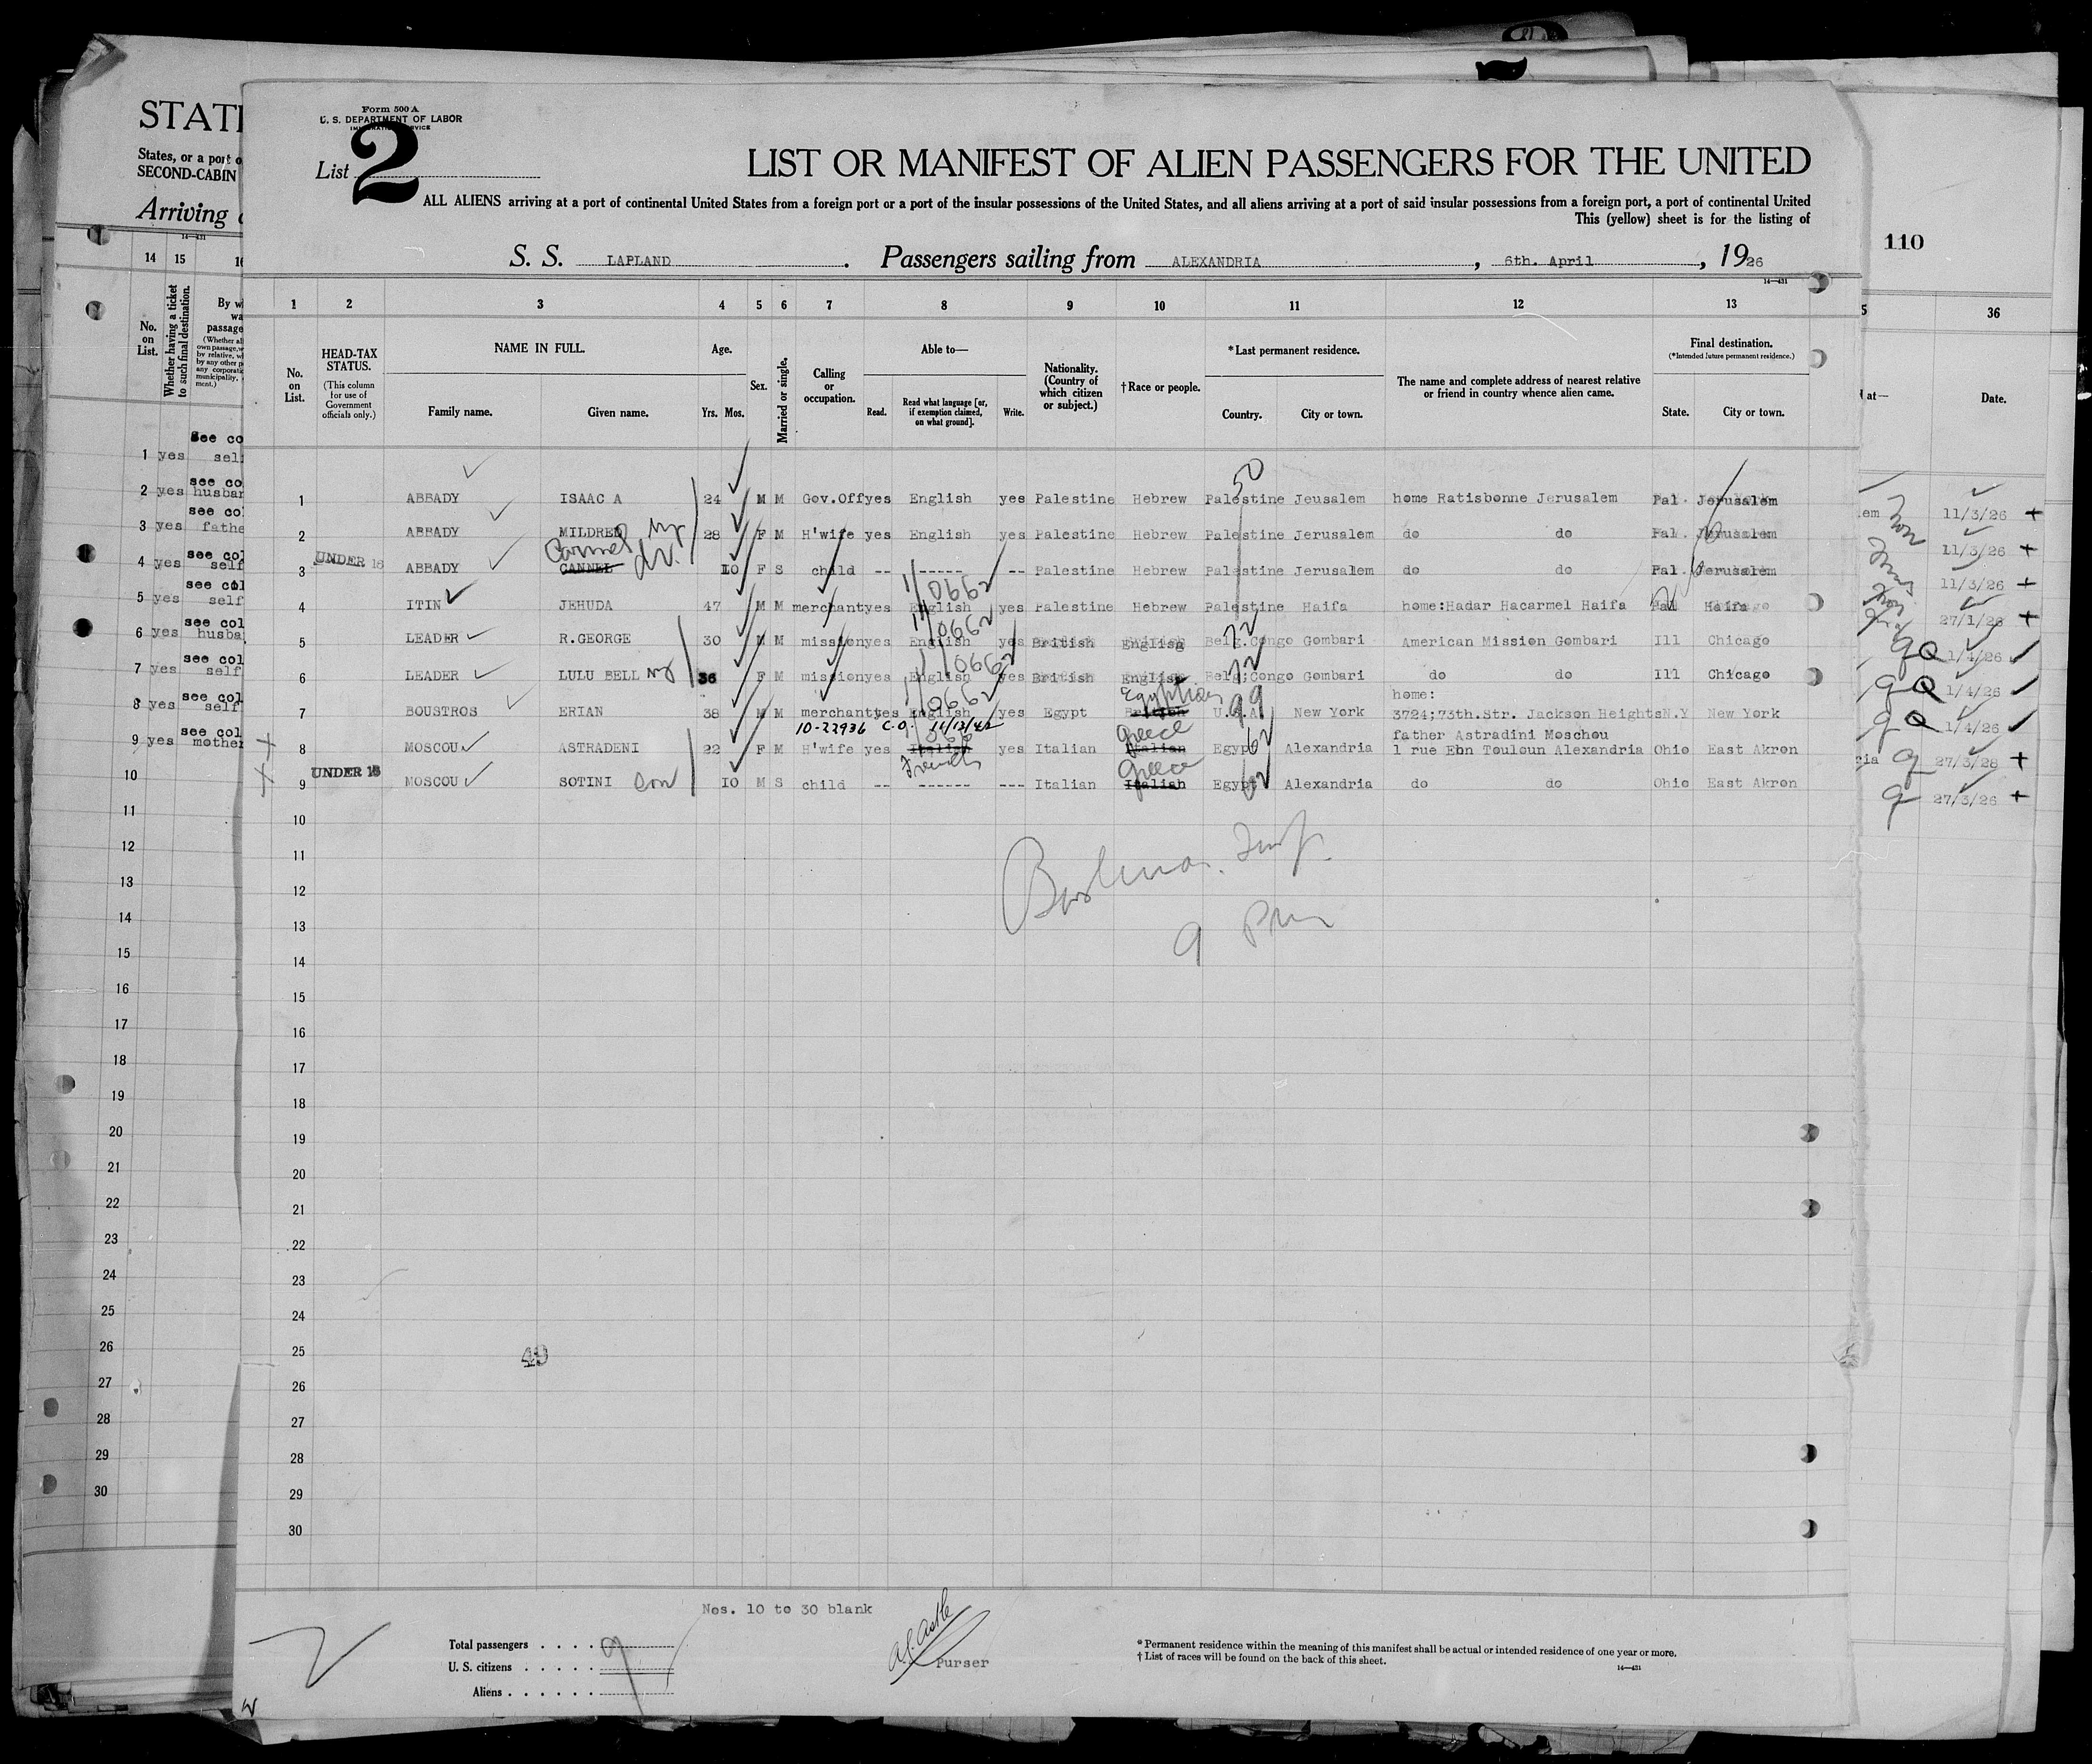 Form 500 A
U. S. DEPARTMENT OF LABOR
IMMIGRATION SERVICE
List 2
LIST OR MANIFEST OF ALIEN PASSENGERS FOR THE UNITED
ALL ALIENS arriving at a port of continental United States from a foreign port or a port of the insular possessions of the United States, and all aliens arriving at a port of said insular possessions from a foreign port, a port of continental United
This (yellow) sheet is for the listing of
S. S. LAPLAND. Passengers sailing from ALEXANDRIA, 6th. April, 1926
14—431
1 2 3 4 5 6 7 8 9 10 11 12 13
No. on List.
HEAD-TAX STATUS.
(This column for use of Government officials only.)
NAME IN FULL.
Family name. Given name.
Age.
Yrs. Mos.
Sex.
Married or single.
Calling or occupation.
Able to—
Read. Read what language [or, if exemption claimed, on what ground]. Write.
Nationality. (Country of which citizen or subject.)
†Race or people.
*Last permanent residence.
Country. City or town.
The name and complete address of nearest relative or friend in country whence alien came.
Final destination.
(*Intended future permanent residence.)
State. City or town.
1 ABBADY ISAAC A 24 M M Gov.Off yes English yes Palestine Hebrew Palestine Jeusalem home Ratisbonne Jerusalem Pal. Jerusalem
50
2 ABBADY MILDRED 28 F M H'wife yes English yes Palestine Hebrew Palestine Jerusalem do do Pal. Jerusalem
Carmel
3 UNDER 16 ABBADY CANNEL 10 F S child -- ----- -- Palestine Hebrew Palestine Jerusalem do do Pal. Jerusalem
4 ITIN JEHUDA 47 M M merchant yes English yes Palestine Hebrew Palestine Haifa home:Hadar Hacarmel Haifa Pal Haifa
5 LEADER R.GEORGE 30 M M mission yes English yes British Englisg Belg.Congo Gombari American Mission Gombari Ill Chicago
6 LEADER LULU BELL 36 F M mission yes English yes British English Belg;Congo Gombari do do Ill Chicago
Egyptian
home:
7 BOUSTROS ERIAN 38 M M merchant yes English yes Egypt British U.S.A. New York 3724;73th.Str. Jackson Heights N.Y New York
99
10-22936 C.O. 11/12/42
Greece
father Astradini Moschou
8 MOSCOU ASTRADENI 22 F M H'wife yes Italian yes Italian Italian Egypt Alexandria 1 rue Ebn Touloun Alexandria Ohio East Akron
French
Greece
9 UNDER 16 MOSCOU SOTINI son 10 M S child -- ------ --- Italian Italian Egypt Alexandria do do Ohio East Akron
10
11
12
13
14
15
16
17
18
19
20
21
22
23
24
25
26
27
28
29
30
9 Pm
49
Nos. 10 to 30 blank
Total passengers . . . . 9
U. S. citizens . . . . .
Aliens . . . . . .
Purser
* Permanent residence within the meaning of this manifest shall be actual or intended residence of one year or more.
† List of races will be found on the back of this sheet.
14—431
STAT
States, or a port o
SECOND-CABIN
Arriving
14—431
14 15 16
No. on List.
Whether having a ticket to such final destination.
By w
wa
passage
(Whether al
own passage, w
by relative, wh
by any other p
any corporati
municipality,
ment.)
see co
1 yes self
see co
2 yes husban
see co
3 yes fathe
see col
4 yes self
see col
5 yes self
see col
6 yes husba
see col
7 yes self
see col
8 yes self
see col
9 yes mother
10
11
12
13
14
15
16
17
18
19
20
21
22
23
24
25
26
27
28
29
30
110
36
at—
Date.
lem 11/3/26 +
11/3/26 +
11/3/26 +
27/1/26 +
1/4/26
1/4/26
1/4/26
ria 27/3/26 +
27/3/26 +